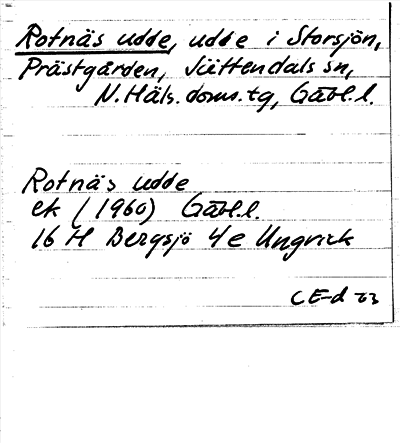 Rotnäs udde, udde i Storsjön,
Prästgården, Jättendals sn,
N. Häls. doms. tg, Gävl. l.
Rotnäs udde
ek (1960) Gävl. l.
16 H Bergsjö 4 e Ungvik
CE-d